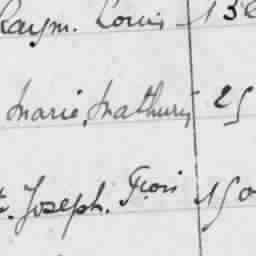 Raym. Louis 13
Marie, Mathurin 25
t. Joseph. Frçois 150